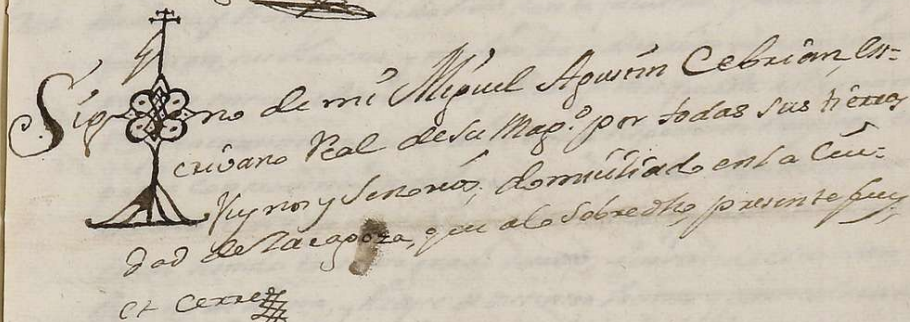 Sig no de mi Miguel Agustin Cebrian, Es-
crivano Real de Su Mag.d por todas sus tierras
Reynos y Señorios, domiciliado en la Ciu-
dad de Zaragoza, que a lo Sobredho presente fuy,
et cerre